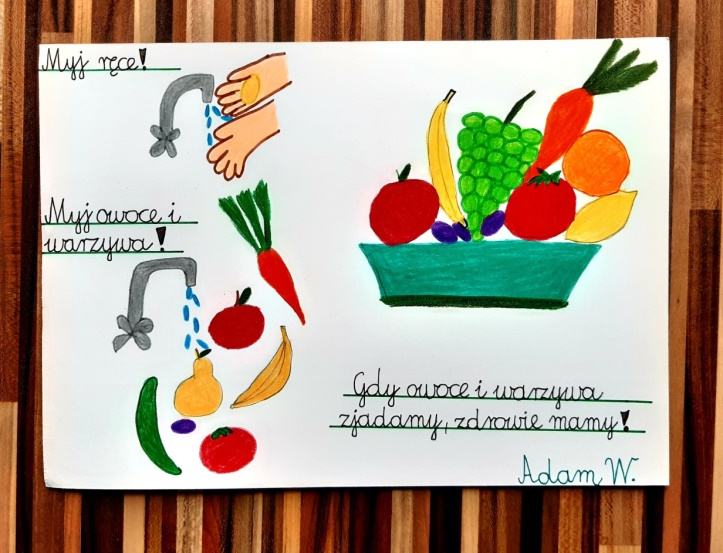 Myj ręce!
Myj owoce i
warzywa!
Gdy owoce i warzywa
zjadamy, zdrowie mamy!
Adam W.